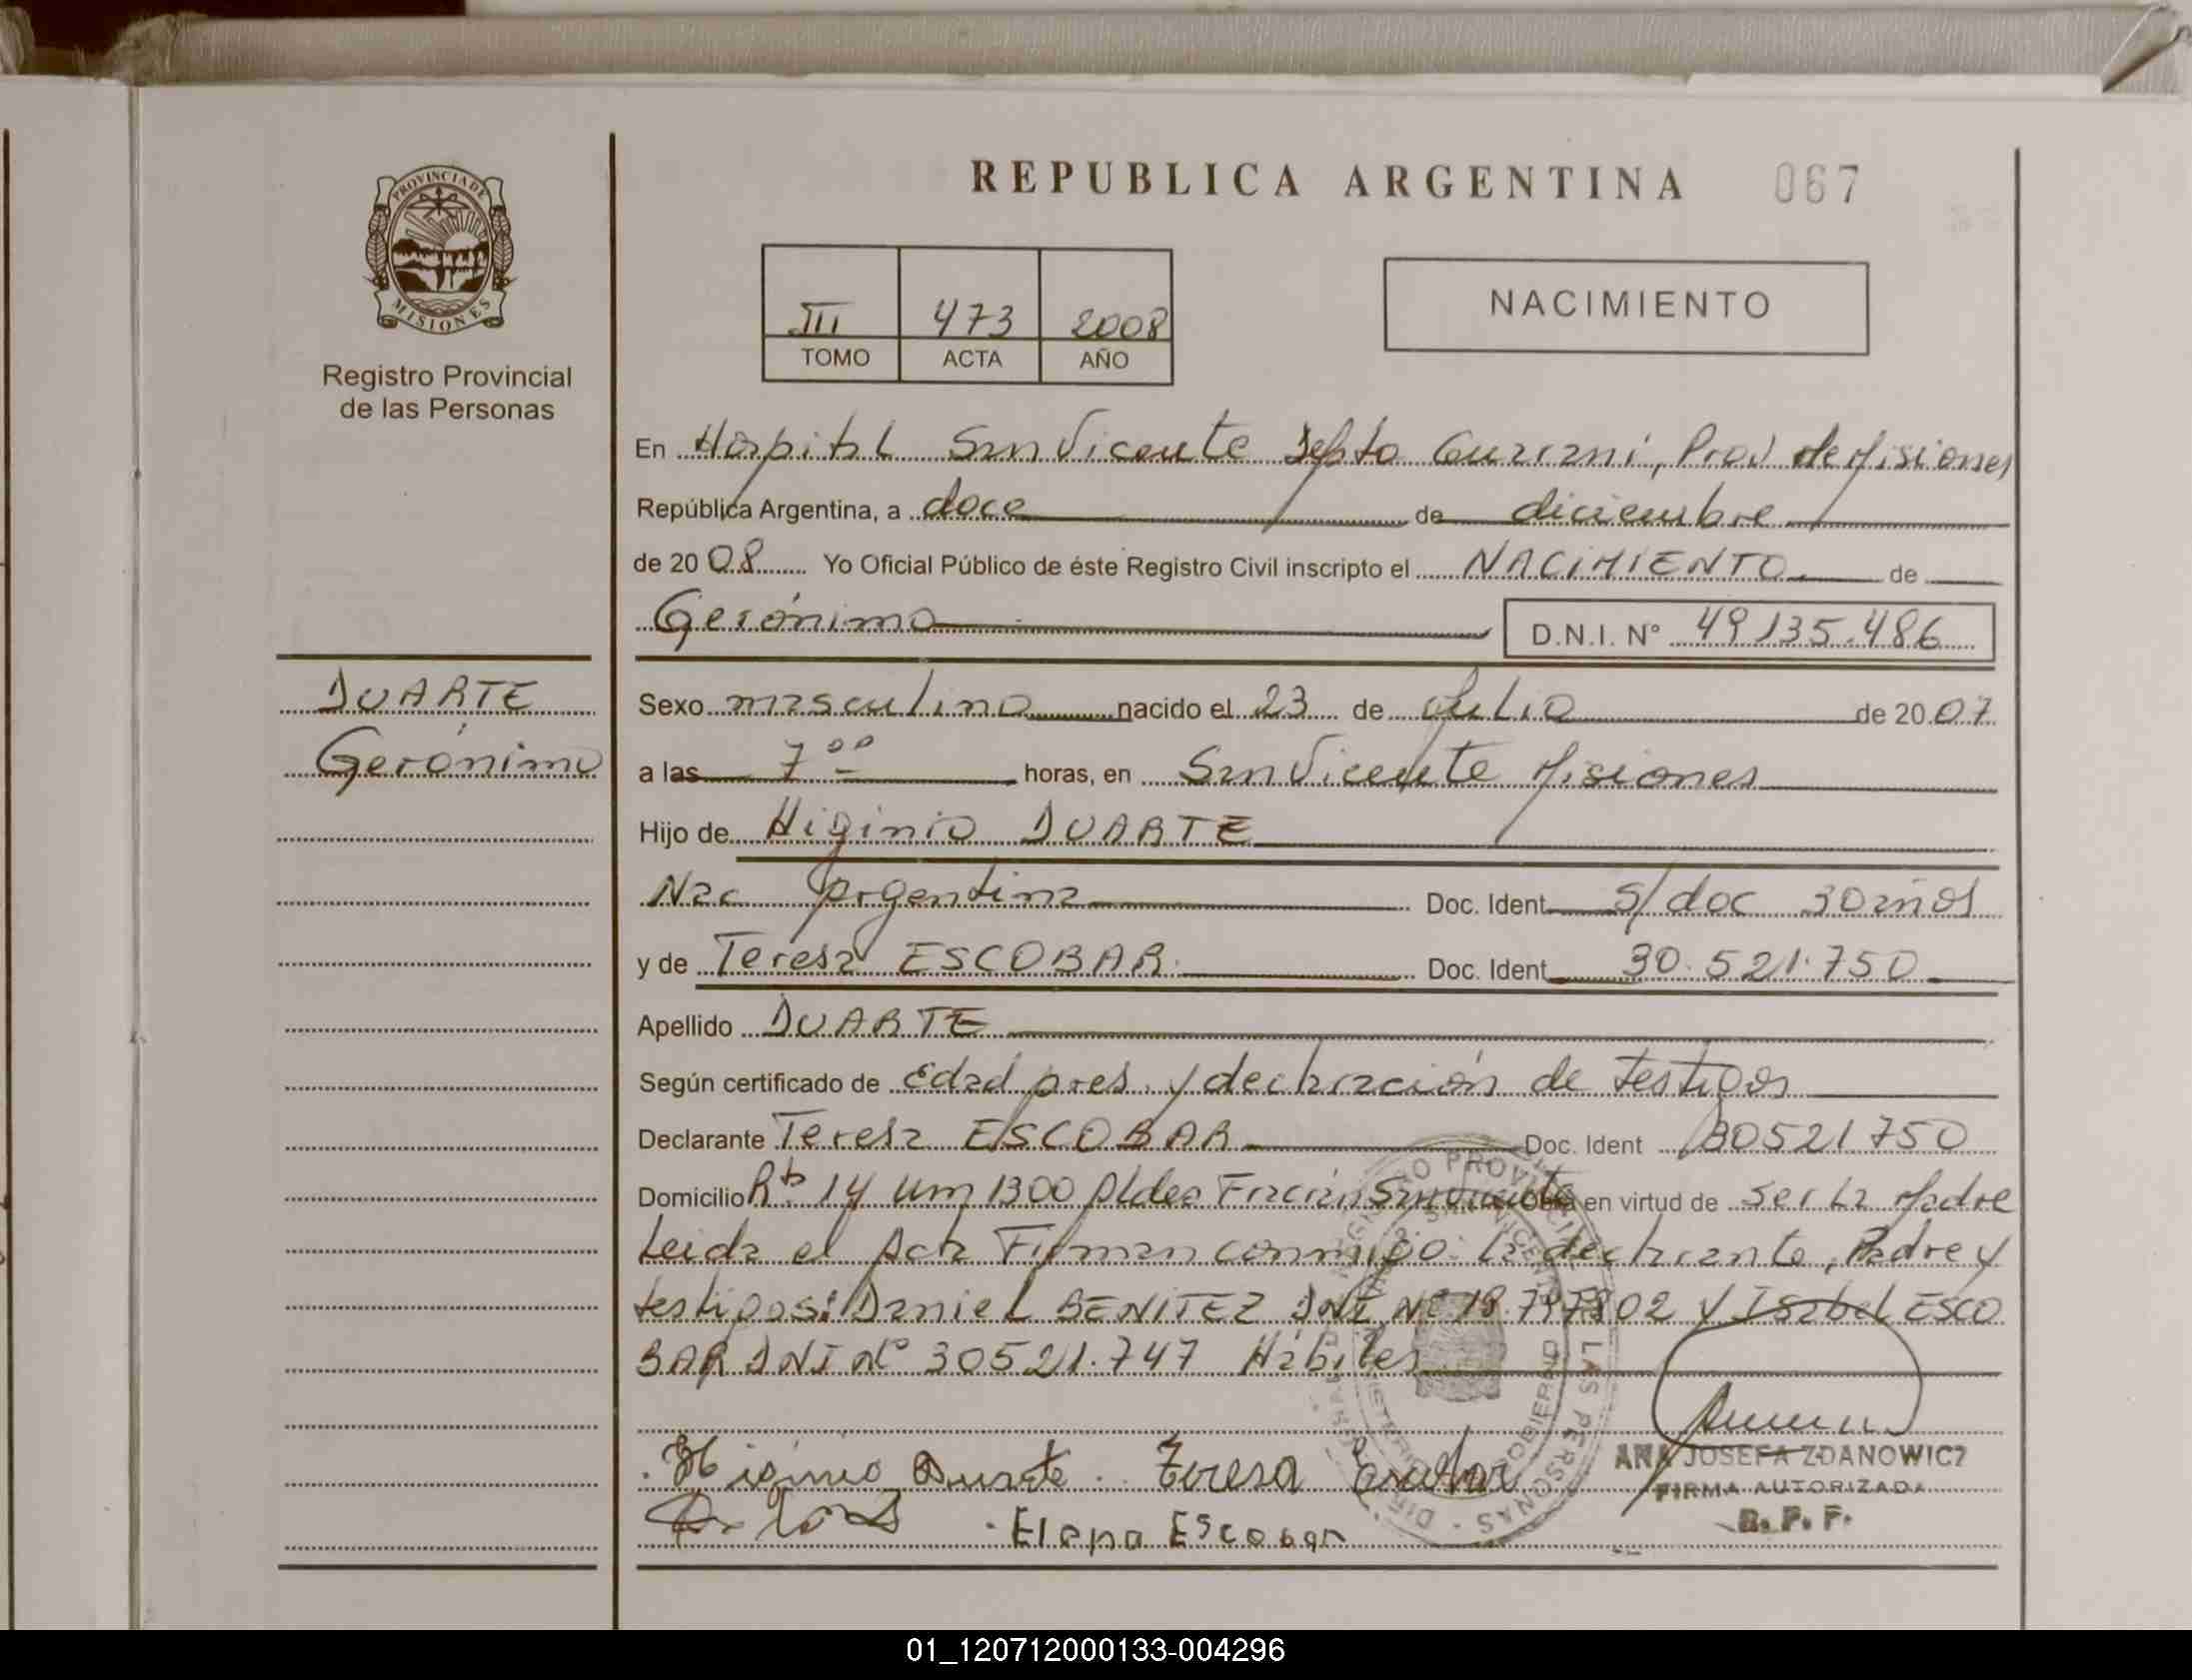 PROVINCIA DE
MISIONES
Registro Provincial
de las Personas
REPUBLICA ARGENTINA 067
III 473 2008
TOMO ACTA AÑO
NACIMIENTO
En Hospital San Vicente Depto Guaraní, Prov de Misiones
República Argentina, a doce de diciembre
de 20 08 Yo Oficial Público de éste Registro Civil inscripto el NACIMIENTO de
Gerónimo D.N.I. N° 49135.486
DUARTE
Gerónimo
Sexo masculino nacido el 23 de Julio de 20 07
a las 7 00 horas, en San Vicente Misiones
Hijo de Higinio DUARTE
Nac Argentina Doc. Ident s/doc 30 años
y de Teresa ESCOBAR Doc. Ident 30.521.750
Apellido DUARTE
Según certificado de Edad pres. y declaración de testigos
Declarante Teresa ESCOBAR Doc. Ident 30521750
Domicilio Rta 14 Km 1300 Aldea Fracrán San Vicente Obra en virtud de ser la Madre
Leida el Acta Firman conmigo: la declarante, Padre y
testigos: Daniel BENITEZ DNI Nº 18.797802 y Isabel ESCO
BAR DNI Nº 30521.747 Hábiles
Higinio Duarte Teresa Escobar
Elena Escobar
ANA JOSEFA ZDANOWICZ
FIRMA AUTORIZADA
R. P. F.
01_120712000133-004296